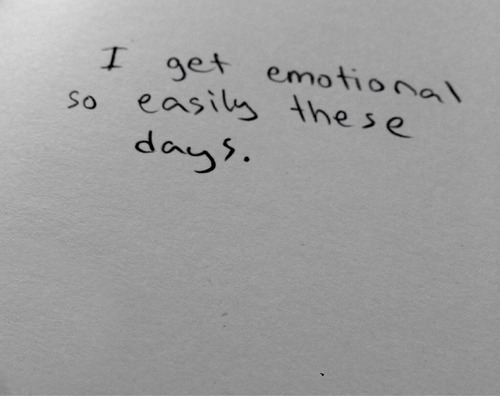 I get emotional
so easily these
days.